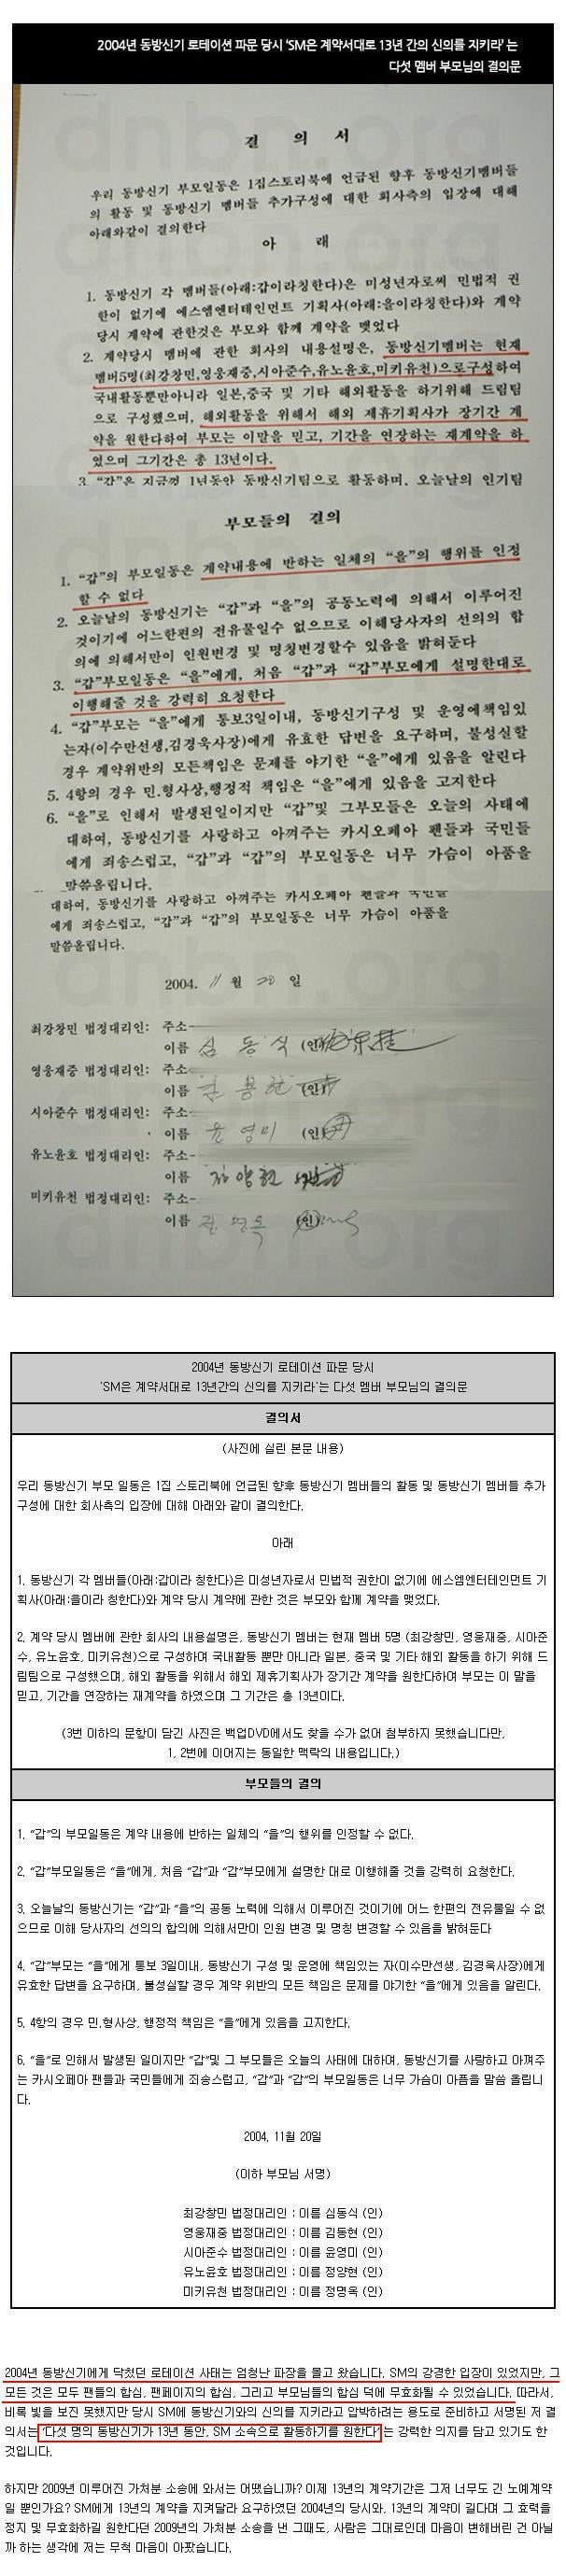 2004년 동방신기 로테이션 파문 당시 ‘SM은 계약서대로 13년 간의 신의를 지키라’ 는
다섯 멤버 부모님의 결의문
dnbn.org
결 의 서
우리 동방신기 부모일동은 1집스토리북에 언급된 향후 동방신기멤버들
의 활동 및 동방신기 멤버들 추가구성에 대한 회사측의 입장에 대해
아래와같이 결의한다
아 래
1. 동방신기 각 멤버들(아래:갑이라칭한다)은 미성년자로써 민법적 권
한이 없기에 에스엠엔터테인먼트 기획사(아래:을이라칭한다)와 계약
당시 계약에 관한것은 부모와 함께 계약을 맺었다
2. 계약당시 멤버에 관한 회사의 내용설명은, 동방신기멤버는 현재
멤버5명(최강창민,영웅재중,시아준수,유노윤호,미키유천)으로구성하여
국내활동뿐만아니라 일본,중국 및 기타 해외활동을 하기위해 드림팀
으로 구성했으며, 해외활동을 위해서 해외 제휴기획사가 장기간 계
약을 원한다하여 부모는 이말을 믿고, 기간을 연장하는 재계약을 하
였으며 그기간은 총 13년이다.
3. “갑”은 지금껏 1년동안 동방신기팀으로 활동하며, 오늘날의 인기팀
부모들의 결의
1. “갑”의 부모일동은 계약내용에 반하는 일체의 “을”의 행위를 인정
할 수 없다
2. 오늘날의 동방신기는 “갑”과 “을”의 공동노력에 의해서 이루어진
것이기에 어느한편의 전유물일수 없으므로 이해당사자의 선의의 합
의에 의해서만이 인원변경 및 명칭변경할수 있음을 밝혀둔다
3. “갑”부모일동은 “을”에게, 처음 “갑”과 “갑”부모에게 설명한대로
이행해줄 것을 강력히 요청한다
4. “갑”부모는 “을”에게 통보3일이내, 동방신기구성 및 운영에책임있
는자(이수만선생,김경욱사장)에게 유효한 답변을 요구하며, 불성실할
경우 계약위반의 모든책임은 문제를 야기한 “을”에게 있음을 알린다
5. 4항의 경우 민.형사상,행정적 책임은 “을”에게 있음을 고지한다
6. “을”로 인해서 발생된일이지만 “갑”및 그부모들은 오늘의 사태에
대하여, 동방신기를 사랑하고 아껴주는 카시오페아 팬들과 국민들
에게 죄송스럽고, “갑”과 “갑”의 부모일동은 너무 가슴이 아픔을
말씀올립니다.
대하여, 동방신기를 사랑하고 아껴주는 카시오페아 팬들과 국민들
에게 죄송스럽고, “갑”과 “갑”의 부모일동은 너무 가슴이 아픔을
말씀올립니다.
2004. 11 월 20 일
최강창민 법정대리인: 주소
이름 심 동 식 (인)
영웅재중 법정대리인: 주소
이름 (인)
시아준수 법정대리인: 주소
이름 윤 영 미 (인)
유노윤호 법정대리인: 주소
이름 정 양 현
미키유천 법정대리인: 주소
이름 명 옥 (인)
2004년 동방신기 로테이션 파문 당시
'SM은 계약서대로 13년간의 신의를 지키라'는 다섯 멤버 부모님의 결의문
결의서
(사진에 실린 본문 내용)
우리 동방신기 부모 일동은 1집 스토리북에 언급된 향후 동방신기 멤버들의 활동 및 동방신기 멤버들 추가
구성에 대한 회사측의 입장에 대해 아래와 같이 결의한다.
아래
1. 동방신기 각 멤버들(아래:갑이라 칭한다)은 미성년자로서 민법적 권한이 없기에 에스엠엔터테인먼트 기
획사(아래:을이라 칭한다)와 계약 당시 계약에 관한 것은 부모와 함께 계약을 맺었다.
2. 계약 당시 멤버에 관한 회사의 내용설명은, 동방신기 멤버는 현재 멤버 5명 (최강창민, 영웅재중, 시아준
수, 유노윤호, 미키유천)으로 구성하여 국내활동 뿐만 아니라 일본, 중국 및 기타 해외 활동을 하기 위해 드
림팀으로 구성했으며, 해외 활동을 위해서 해외 제휴기획사가 장기간 계약을 원한다하여 부모는 이 말을
믿고, 기간을 연장하는 재계약을 하였으며 그 기간은 총 13년이다.
(3번 이하의 문항이 담긴 사진은 백업DVD에서도 찾을 수가 없어 첨부하지 못했습니다만,
1, 2번에 이어지는 동일한 맥락의 내용입니다.)
부모들의 결의
1. “갑”의 부모일동은 계약 내용에 반하는 일체의 “을”의 행위를 인정할 수 없다.
2. “갑”부모일동은 “을”에게, 처음 “갑”과 “갑”부모에게 설명한 대로 이행해줄 것을 강력히 요청한다.
3. 오늘날의 동방신기는 “갑”과 “을”의 공동 노력에 의해서 이루어진 것이기에 어느 한편의 전유물일 수 없
으므로 이해 당사자의 선의의 합의에 의해서만이 인원 변경 및 명칭 변경할 수 있음을 밝혀둔다
4. “갑”부모는 “을”에게 통보 3일이내, 동방신기 구성 및 운영에 책임있는 자(이수만선생, 김경욱사장)에게
유효한 답변을 요구하며, 불성실할 경우 계약 위반의 모든 책임은 문제를 야기한 “을”에게 있음을 알린다.
5. 4항의 경우 민.형사상, 행정적 책임은 “을”에게 있음을 고지한다.
6. “을”로 인해서 발생된 일이지만 “갑”및 그 부모들은 오늘의 사태에 대하여, 동방신기를 사랑하고 아껴주
는 카시오페아 팬들과 국민들에게 죄송스럽고, “갑”과 “갑”의 부모일동은 너무 가슴이 아픔을 말씀 올립니
다.
2004, 11월 20일
(이하 부모님 서명)
최강창민 법정대리인 : 이름 심동식 (인)
영웅재중 법정대리인 : 이름 김동현 (인)
시아준수 법정대리인 : 이름 윤영미 (인)
유노윤호 법정대리인 : 이름 정양현 (인)
미키유천 법정대리인 : 이름 정명옥 (인)
2004년 동방신기에게 닥쳤던 로테이션 사태는 엄청난 파장을 몰고 왔습니다. SM의 강경한 입장이 있었지만, 그
모든 것은 모두 팬들의 합심, 팬페이지의 합심, 그리고 부모님들의 합심 덕에 무효화될 수 있었습니다. 따라서,
비록 빛을 보진 못했지만 당시 SM에 동방신기와의 신의를 지키라고 압박하려는 용도로 준비하고 서명된 저 결
의서는 ‘다섯 명의 동방신기가 13년 동안, SM 소속으로 활동하기를 원한다’는 강력한 의지를 담고 있기도 한
것입니다.
하지만 2009년 이루어진 가처분 소송에 와서는 어땠습니까? 이제 13년의 계약기간은 그저 너무도 긴 노예계약
일 뿐인가요? SM에게 13년의 계약을 지켜달라 요구하였던 2004년의 당시와, 13년의 계약이 길다며 그 효력을
정지 및 무효화하길 원한다던 2009년의 가처분 소송을 낸 그때도, 사람은 그대로인데 마음이 변해버린 건 아닐
까 하는 생각에 저는 무척 마음이 아팠습니다.